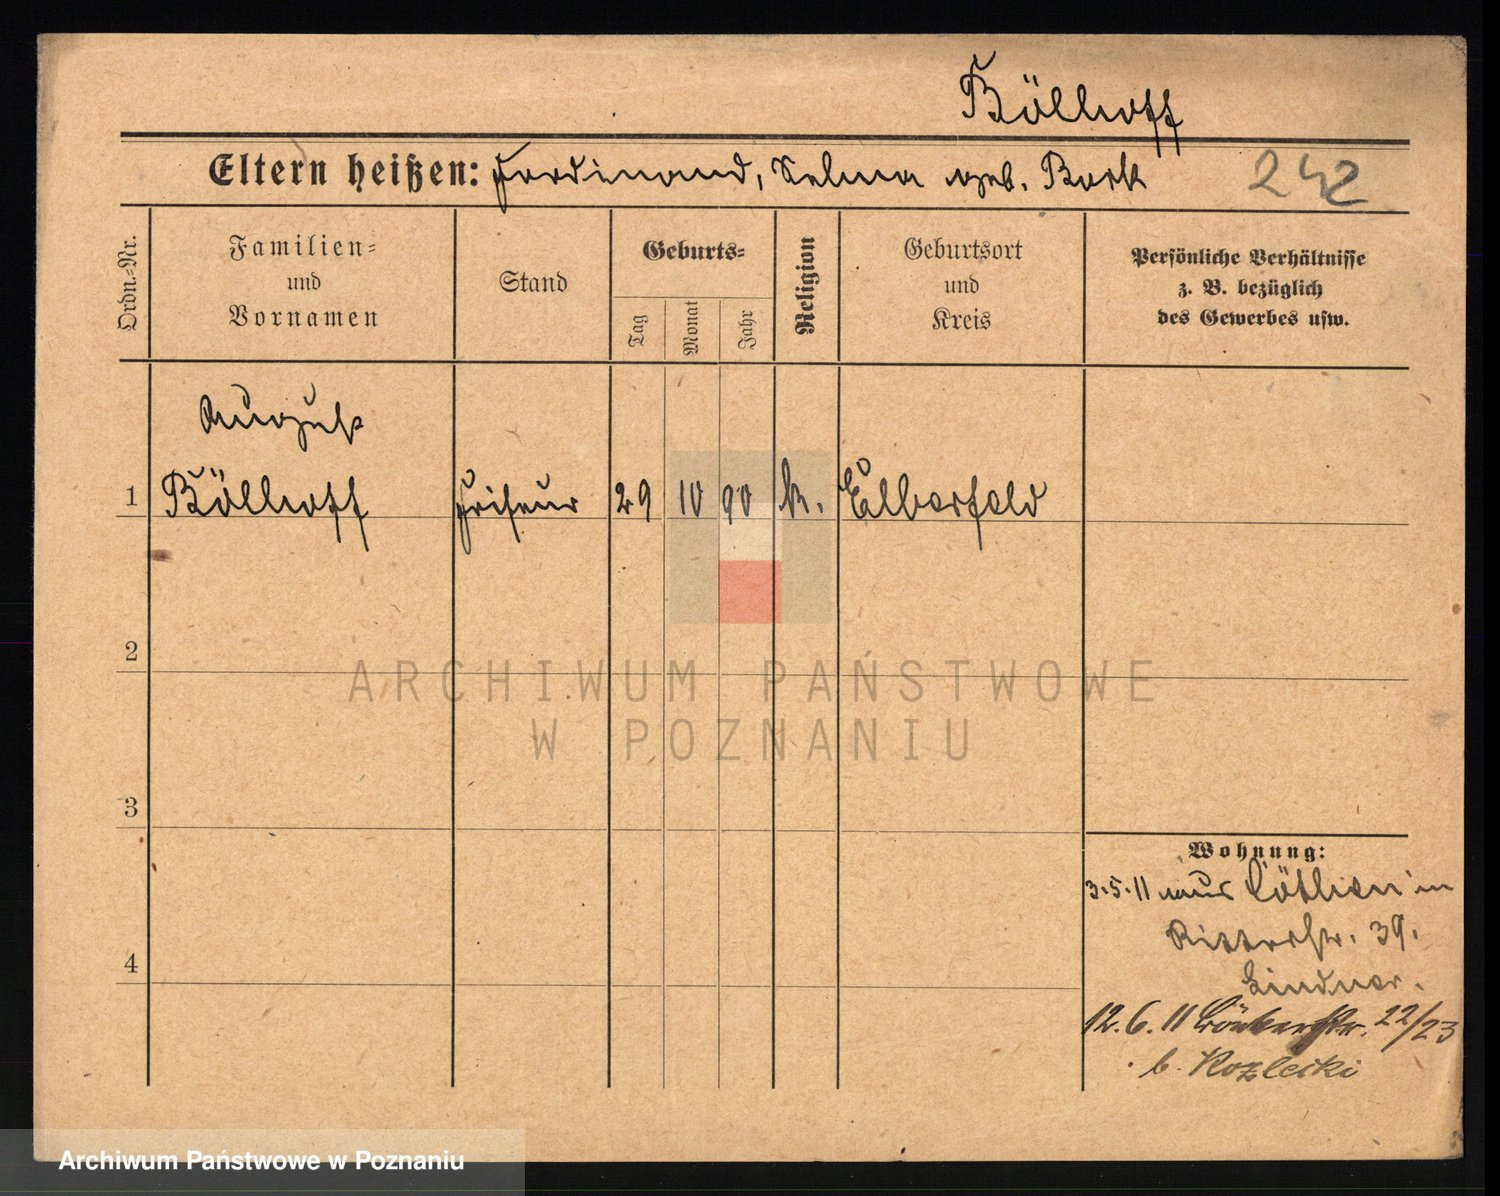 Böllhoff
Eltern heißen: Ferdinand, Selma geb. Bork
242
Ordn.-Nr.
Familien-
und
Vornamen
Stand
Geburts-
Tag
Monat
Jahr
Religion
Geburtsort
und
Kreis
Persönliche Verhältnisse
z. B. bezüglich
des Gewerbes usw.
August
1 Böllhoff Friseur 29 10 90 k. Elberfeld
2
3
4
Wohnung:
3.5.11 aus Cöthen in
Ritterstr. 39.
Lindner.
12.6.11 22/23
b. Kozlecki
ARCHIWUM PAŃSTWOWE
W POZNANIU
Archiwum Państwowe w Poznaniu